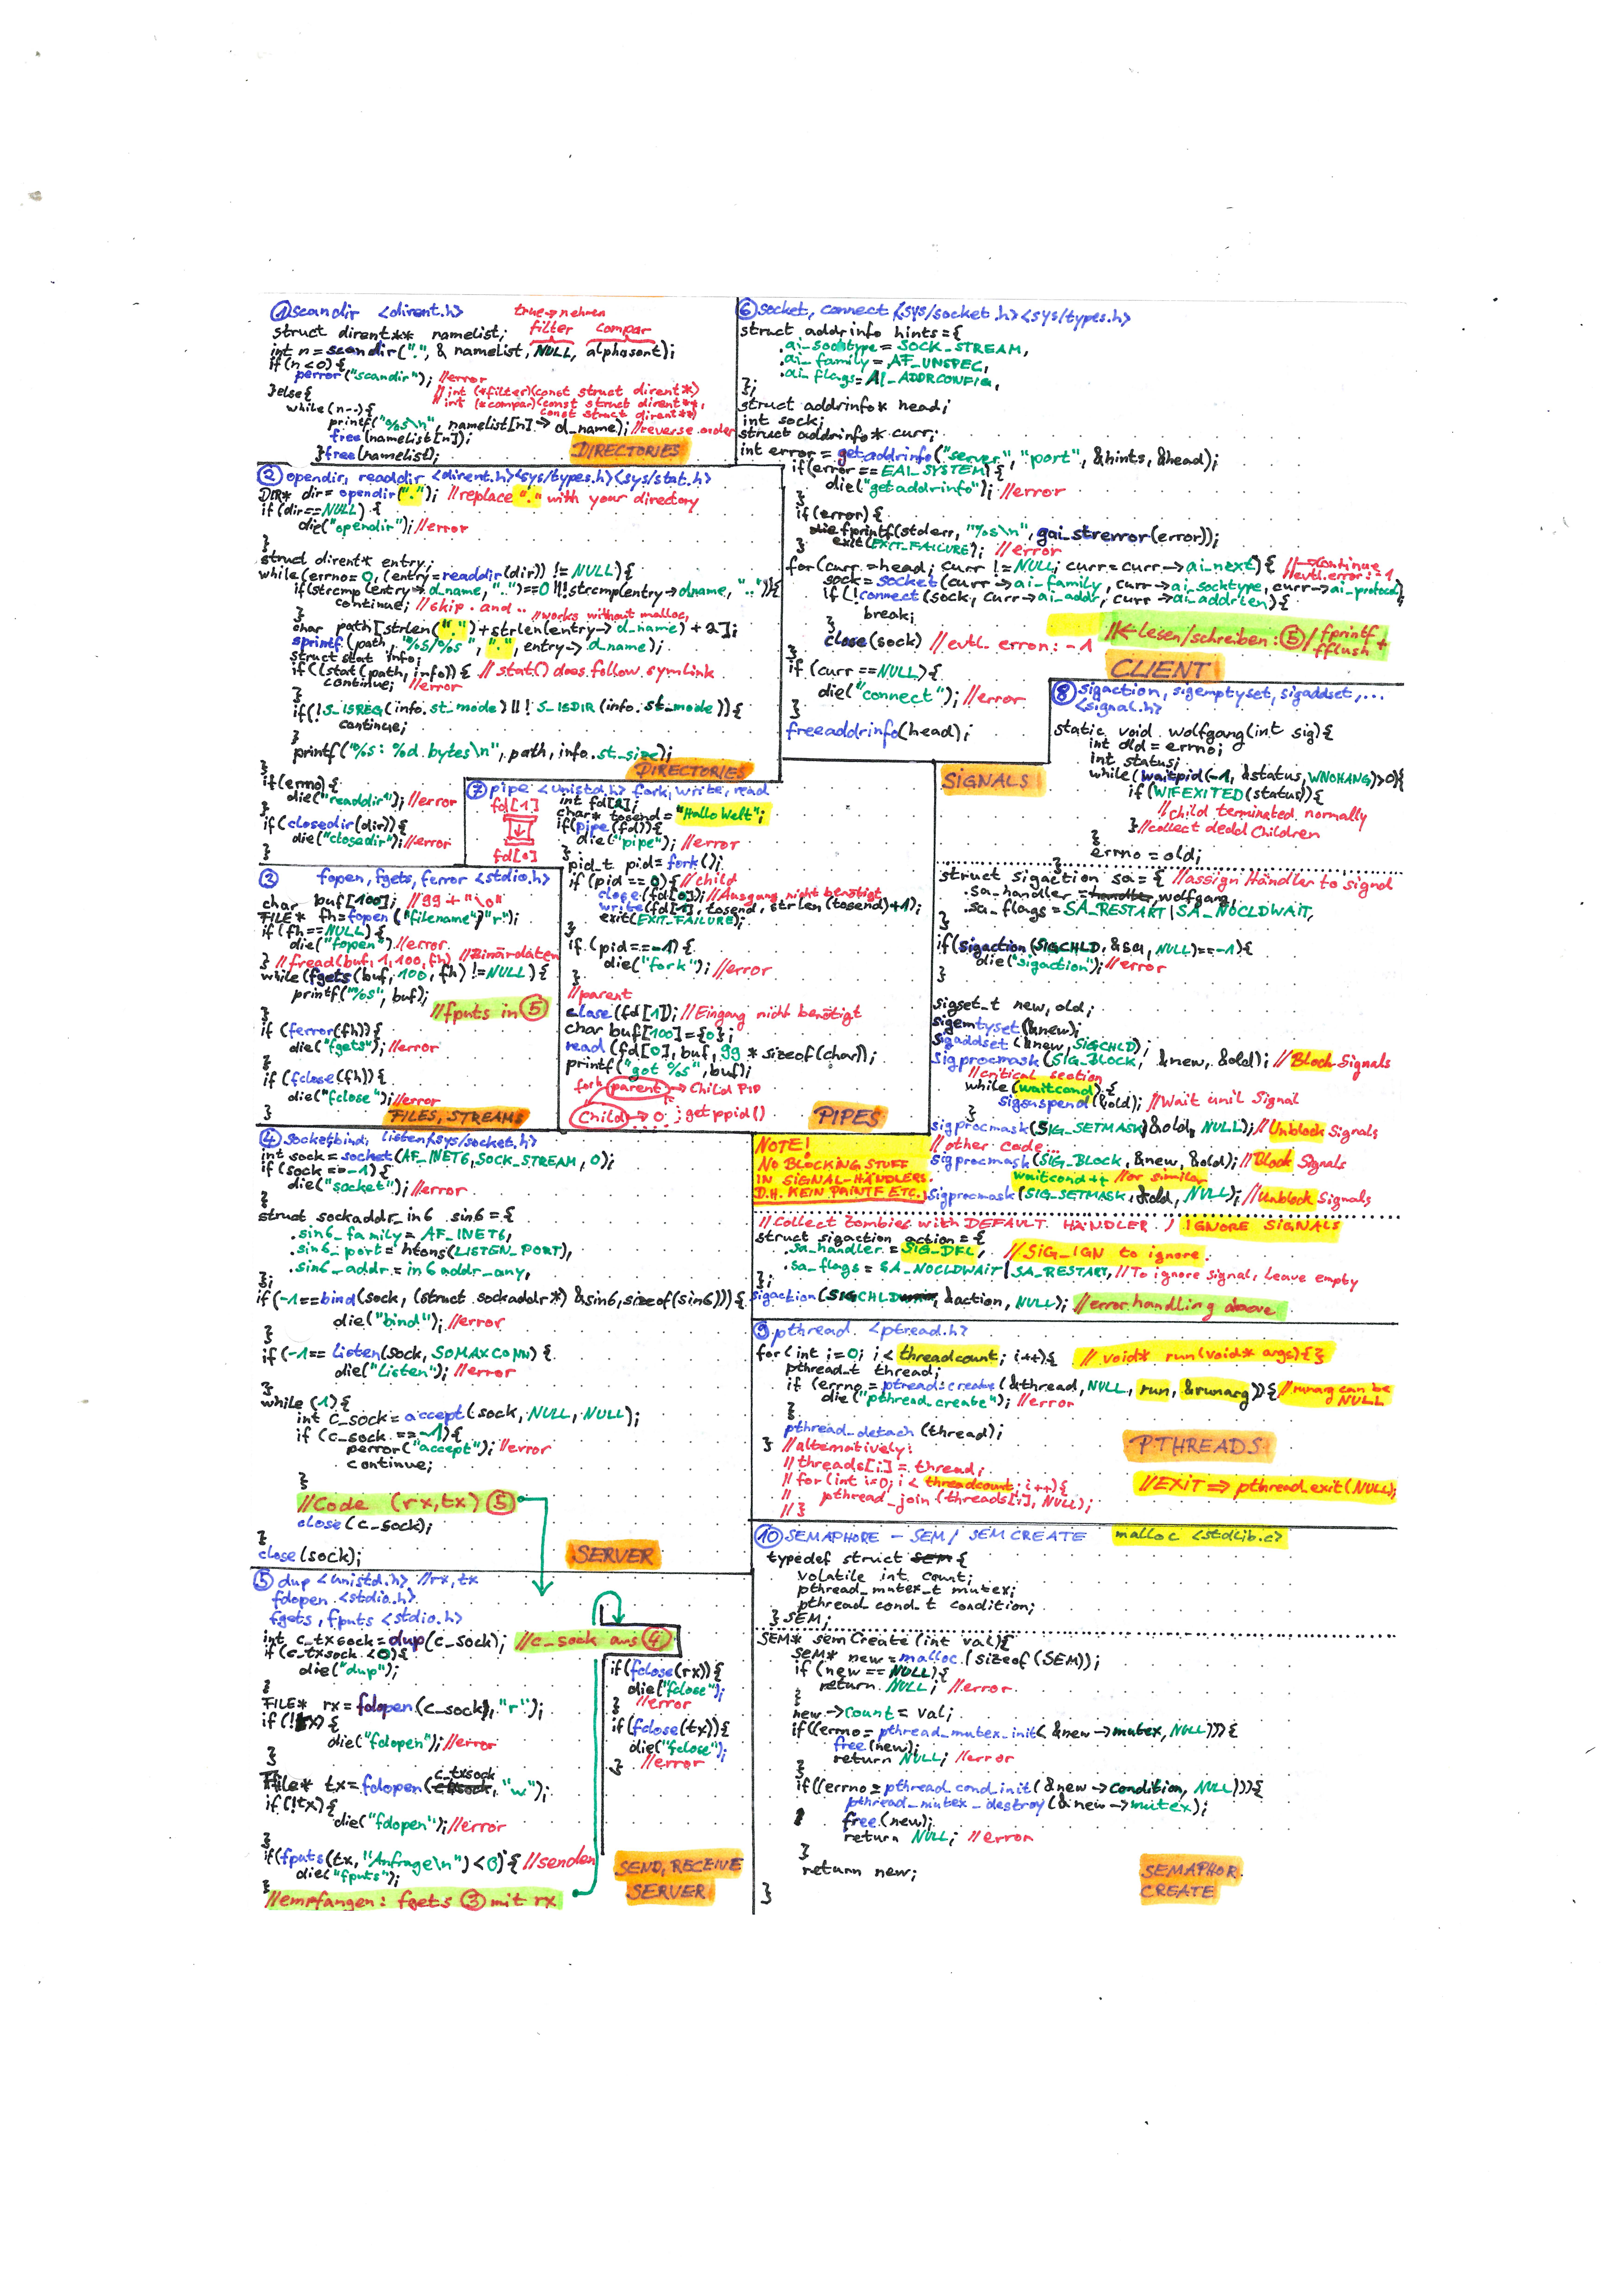 ① scandir <dirent.h> true→nehmen
struct dirent** namelist; filter compar
int n = scandir(".", & namelist, NULL, alphasort);
if (n<0) {
perror("scandir"); //error
}else{ // int (*filter)(const struct dirent*)
// int (*compar)(const struct dirent**,
while(n--){ const struct dirent**)
printf("%s\n", namelist[n]->d_name); //reverse order
free(namelist[n]);
}free(namelist);
DIRECTORIES
② opendir, readdir <dirent.h><sys/types.h><sys/stat.h>
DIR* dir = opendir("."); //replace "." with your directory
if (dir==NULL) {
die("opendir"); //error
}
struct dirent* entry;
while(errno=0, (entry=readdir(dir)) != NULL){
if(strcmp(entry->d_name, ".")==0 || !strcmp(entry->dname, "..")){
continue; //skip . and ..
} //works without malloc,
char path[strlen(".")+strlen(entry->d_name)+2];
sprintf(path, "%s/%s", ".", entry->d_name);
struct stat info;
if(lstat(path, info)) { // stat() does follow symlink
continue; //error
}
if(!S_ISREG(info.st_mode) || !S_ISDIR(info.st_mode)){
continue;
}
printf("%s: %d bytes\n", path, info.st_size);
}
DIRECTORIES
if(errno) {
die("readdir"); //error
}
if(closedir(dir)) {
die("closedir"); //error
}
③ fopen, fgets, ferror <stdio.h>
char buf[100]; //99 + "\0"
FILE* fh=fopen("filename","r");
if (fh==NULL) {
die("fopen") //error
} //fread(buf,1,100,fh) //Binärdaten
while(fgets(buf, 100, fh) !=NULL) {
printf("%s", buf);
} //fputs in ⑤
if (ferror(fh)) {
die("fgets"); //error
}
if (fclose(fh)) {
die("fclose"); //error
}
FILES, STREAMS
④ socket bind, listen <sys/socket.h>
int sock = socket(AF_INET6, SOCK_STREAM, 0);
if (sock ==-1) {
die("socket"); //error
}
struct sockaddr_in6 sin6 = {
.sin6_family = AF_INET6,
.sin6_port = htons(LISTEN_PORT),
.sin6_addr = in6addr_any,
};
if (-1==bind(sock, (struct sockaddr*) &sin6, sizeof(sin6))) {
die("bind"); //error
}
if (-1== listen(sock, SOMAXCONN) {
die("Listen"); //error
}
while (1) {
int c_sock = accept(sock, NULL, NULL);
if (c_sock ==-1){
perror("accept"); //error
continue;
}
//Code (rx,tx) ⑤
close(c_sock);
}
close(sock);
SERVER
⑤ dup <unistd.h> //rx,tx
fdopen <stdio.h>
fgets, fputs <stdio.h>
int c_txsock = dup(c_sock); //c_sock aus ④
if (c_txsock <0){
die("dup");
}
FILE* rx = fdopen(c_sock, "r");
if (!rx) {
die("fdopen"); //error
}
File* tx = fdopen(c_txsock, "w");
if (!tx) {
die("fdopen"); //error
}
if(fputs(tx, "Anfrage\n") <0) { //senden
die("fputs");
}
//empfangen: fgets ③ mit rx
if(fclose(rx)) {
die("fclose");
} //error
if(fclose(tx)){
die("fclose");
} //error
SEND, RECEIVE
SERVER
⑥ socket, connect <sys/socket.h> <sys/types.h>
struct addrinfo hints = {
.ai_socktype = SOCK_STREAM,
.ai_family = AF_UNSPEC,
.ai_flags = AI_ADDRCONFIG,
};
struct addrinfo* head;
int sock;
struct addrinfo* curr;
int error = getaddrinfo("server", "port", &hints, &head);
if(error == EAI_SYSTEM) {
die("getaddrinfo"); //error
}
if(error) {
fprintf(stderr, "%s\n", gai_strerror(error));
exit(EXIT_FAILURE); //error
}
for(curr=head; curr != NULL; curr = curr->ai_next) { //→continue
//evtl. error: -1
sock = socket(curr->ai_family, curr->ai_socktype, curr->ai_protocol)
if (!connect(sock, curr->ai_addr, curr->ai_addrlen) {
break;
}
//← lesen/schreiben: ⑤/ fprintf + fflush
close(sock) //evtl. erron: -1
}
CLIENT
if (curr ==NULL) {
die("connect"); //error
}
freeaddrinfo(head);
⑦ pipe <unistd.h> fork, write, read
fd[1]
fd[0]
int fd[2];
char* tosend = "Hallo Welt";
if(pipe(fd)){
die("pipe"); //error
}
pid_t pid = fork();
if (pid == 0) { //child
close(fd[0]); //Ausgang nicht benötigt
write(fd[1], tosend, strlen(tosend)+1);
exit(EXIT_FAILURE);
}
if (pid==-1) {
die("fork"); //error
}
//parent
close(fd[1]); //Eingang nicht benötigt
char buf[100] = {0};
read (fd[0], buf, 99 * sizeof(char));
printf("got %s", buf);
fork parent → Child PID
Child → 0 ; getppid()
PIPES
⑧ sigaction, sigemptyset, sigaddset, ...
<signal.h>
SIGNALS
static void wolfgang(int sig){
int old = errno;
int status;
while(waitpid(-1, &status, WNOHANG)>0){
if (WIFEXITED(status)){
//child terminated normally
} //collect dead Children
}
errno = old;
}
struct sigaction sa = { //assign Händler to signal
.sa_handler = wolfgang,
.sa_flags = SA_RESTART | SA_NOCLDWAIT,
}
if(sigaction(SIGCHLD, &sa, NULL)==-1){
die("sigaction"); //error
}
sigset_t new, old;
sigemtyset(&new);
sigaddset(&new, SIGCHLD)
sigprocmask(SIG_BLOCK, &new, &old); //Block Signals
//critical section
while(waitcond) {
sigsuspend(&old); //Wait unil Signal
}
sigprocmask(SIG_SETMASK, &old, NULL); //Unblock Signals
//other code...
sigprocmask(SIG_BLOCK, &new, &old); //Block Signals
waitcond++ //or similar
sigprocmask(SIG_SETMASK, &old, NULL); //Unblock Signals
NOTE!
NO BLOCKING STUFF
IN SIGNAL-HÄNDLERS.
D.H. KEIN PRINTF ETC.
//Collect Zombies with DEFAULT HÄNDLER. / IGNORE SIGNALS
struct sigaction action = {
.sa_handler = SIG_DFL, //SIG_IGN to ignore.
.sa_flags = SA_NOCLDWAIT | SA_RESTART, //To ignore signal, leave empty
};
sigaction(SIGCHLD, &action, NULL); //error handling above
⑨ pthread <ptread.h>
for (int i=0; i < threadcount; i++){ // void* run(void* args){}
pthread_t thread;
if (errno = ptread_create(&thread, NULL, run, &runarg)) { //runarg can be NULL
die("pthread_create"); //error
}
pthread_detach (thread);
} //alternatively:
// threads[i] = thread;
// for (int i=0; i < threadcount; i++){
// pthread_join (threads[i], NULL);
// }
PTHREADS
//EXIT ⇒ pthread_exit(NULL);
⑩ SEMAPHORE - SEM / SEM CREATE malloc <stdlib.c>
typedef struct {
volatile int count;
pthread_mutex_t mutex;
pthread_cond_t condition;
} SEM;
SEM* semCreate (int val){
SEM* new = malloc(sizeof(SEM));
if (new == NULL) {
return NULL; //error
}
new->count = val;
if((errno = pthread_mutex_init(&new->mutex, NULL))){
free(new);
return NULL; //error
}
if((errno = pthread_cond_init(&new->condition, NULL))){
pthread_mutex_destroy(&new->mutex);
free(new);
return NULL; //error
}
return new;
}
SEMAPHOR
CREATE